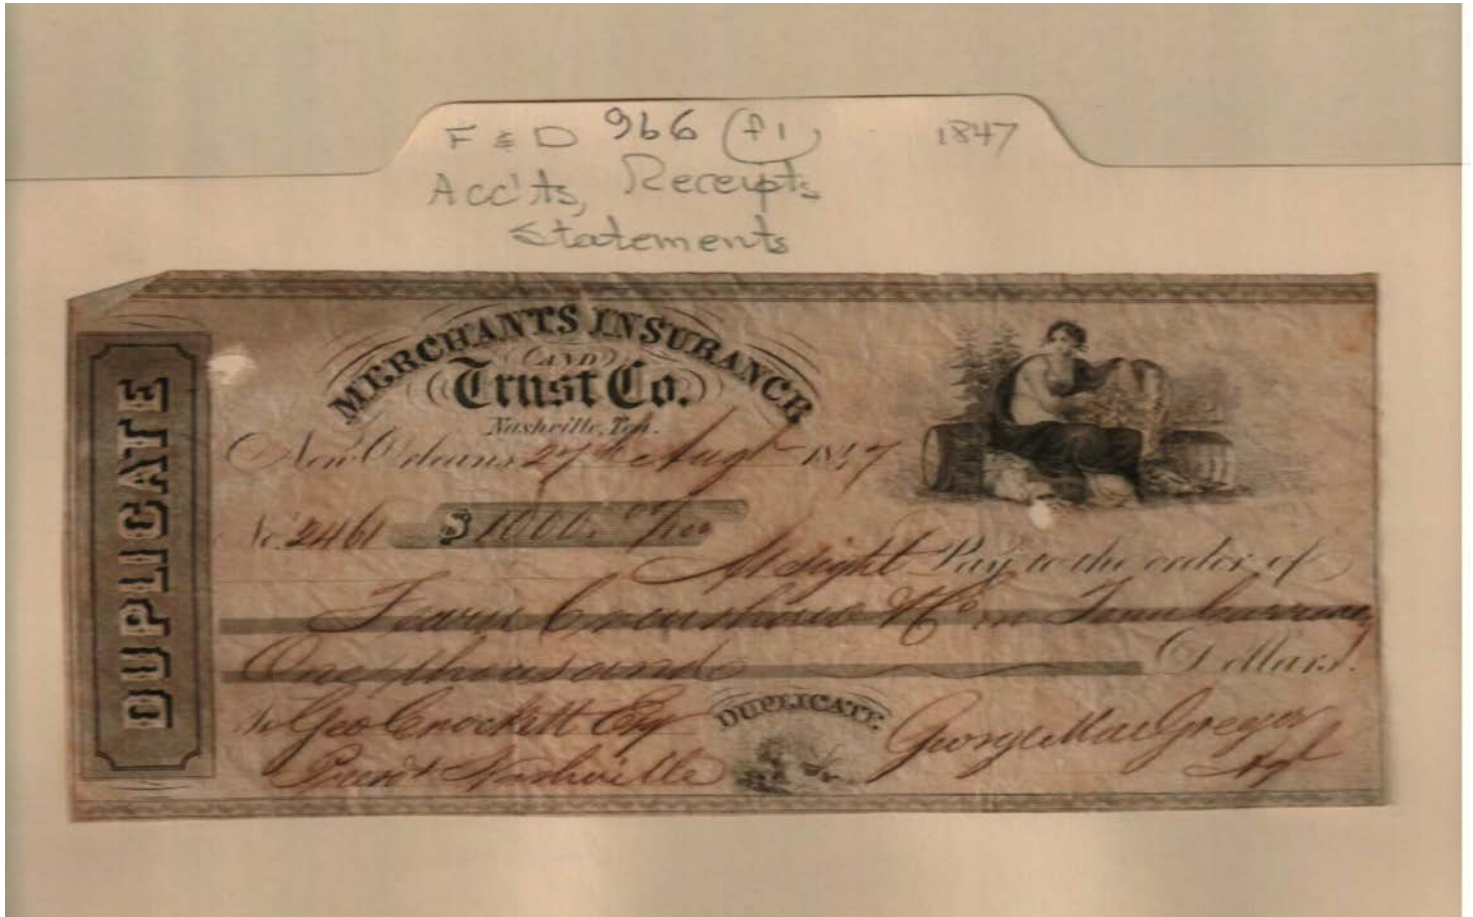 F & D 966 (f1) 1847
Acc'ts, Receipts
Statements
DUPLICATE
MERCHANTS INSURANCE
AND
Trust Co.
Nashville, Ten.
New Orleans 27th Augt 1847
No. 2461 $1000. 00/100
At Sight Pay to the order of
Fearn Crenshaw & Co in Tenn Currency
One thousand Dollars.
To Geo Crockett Esq DUPLICATE. George MacGregor
Presdt Nashville Agt